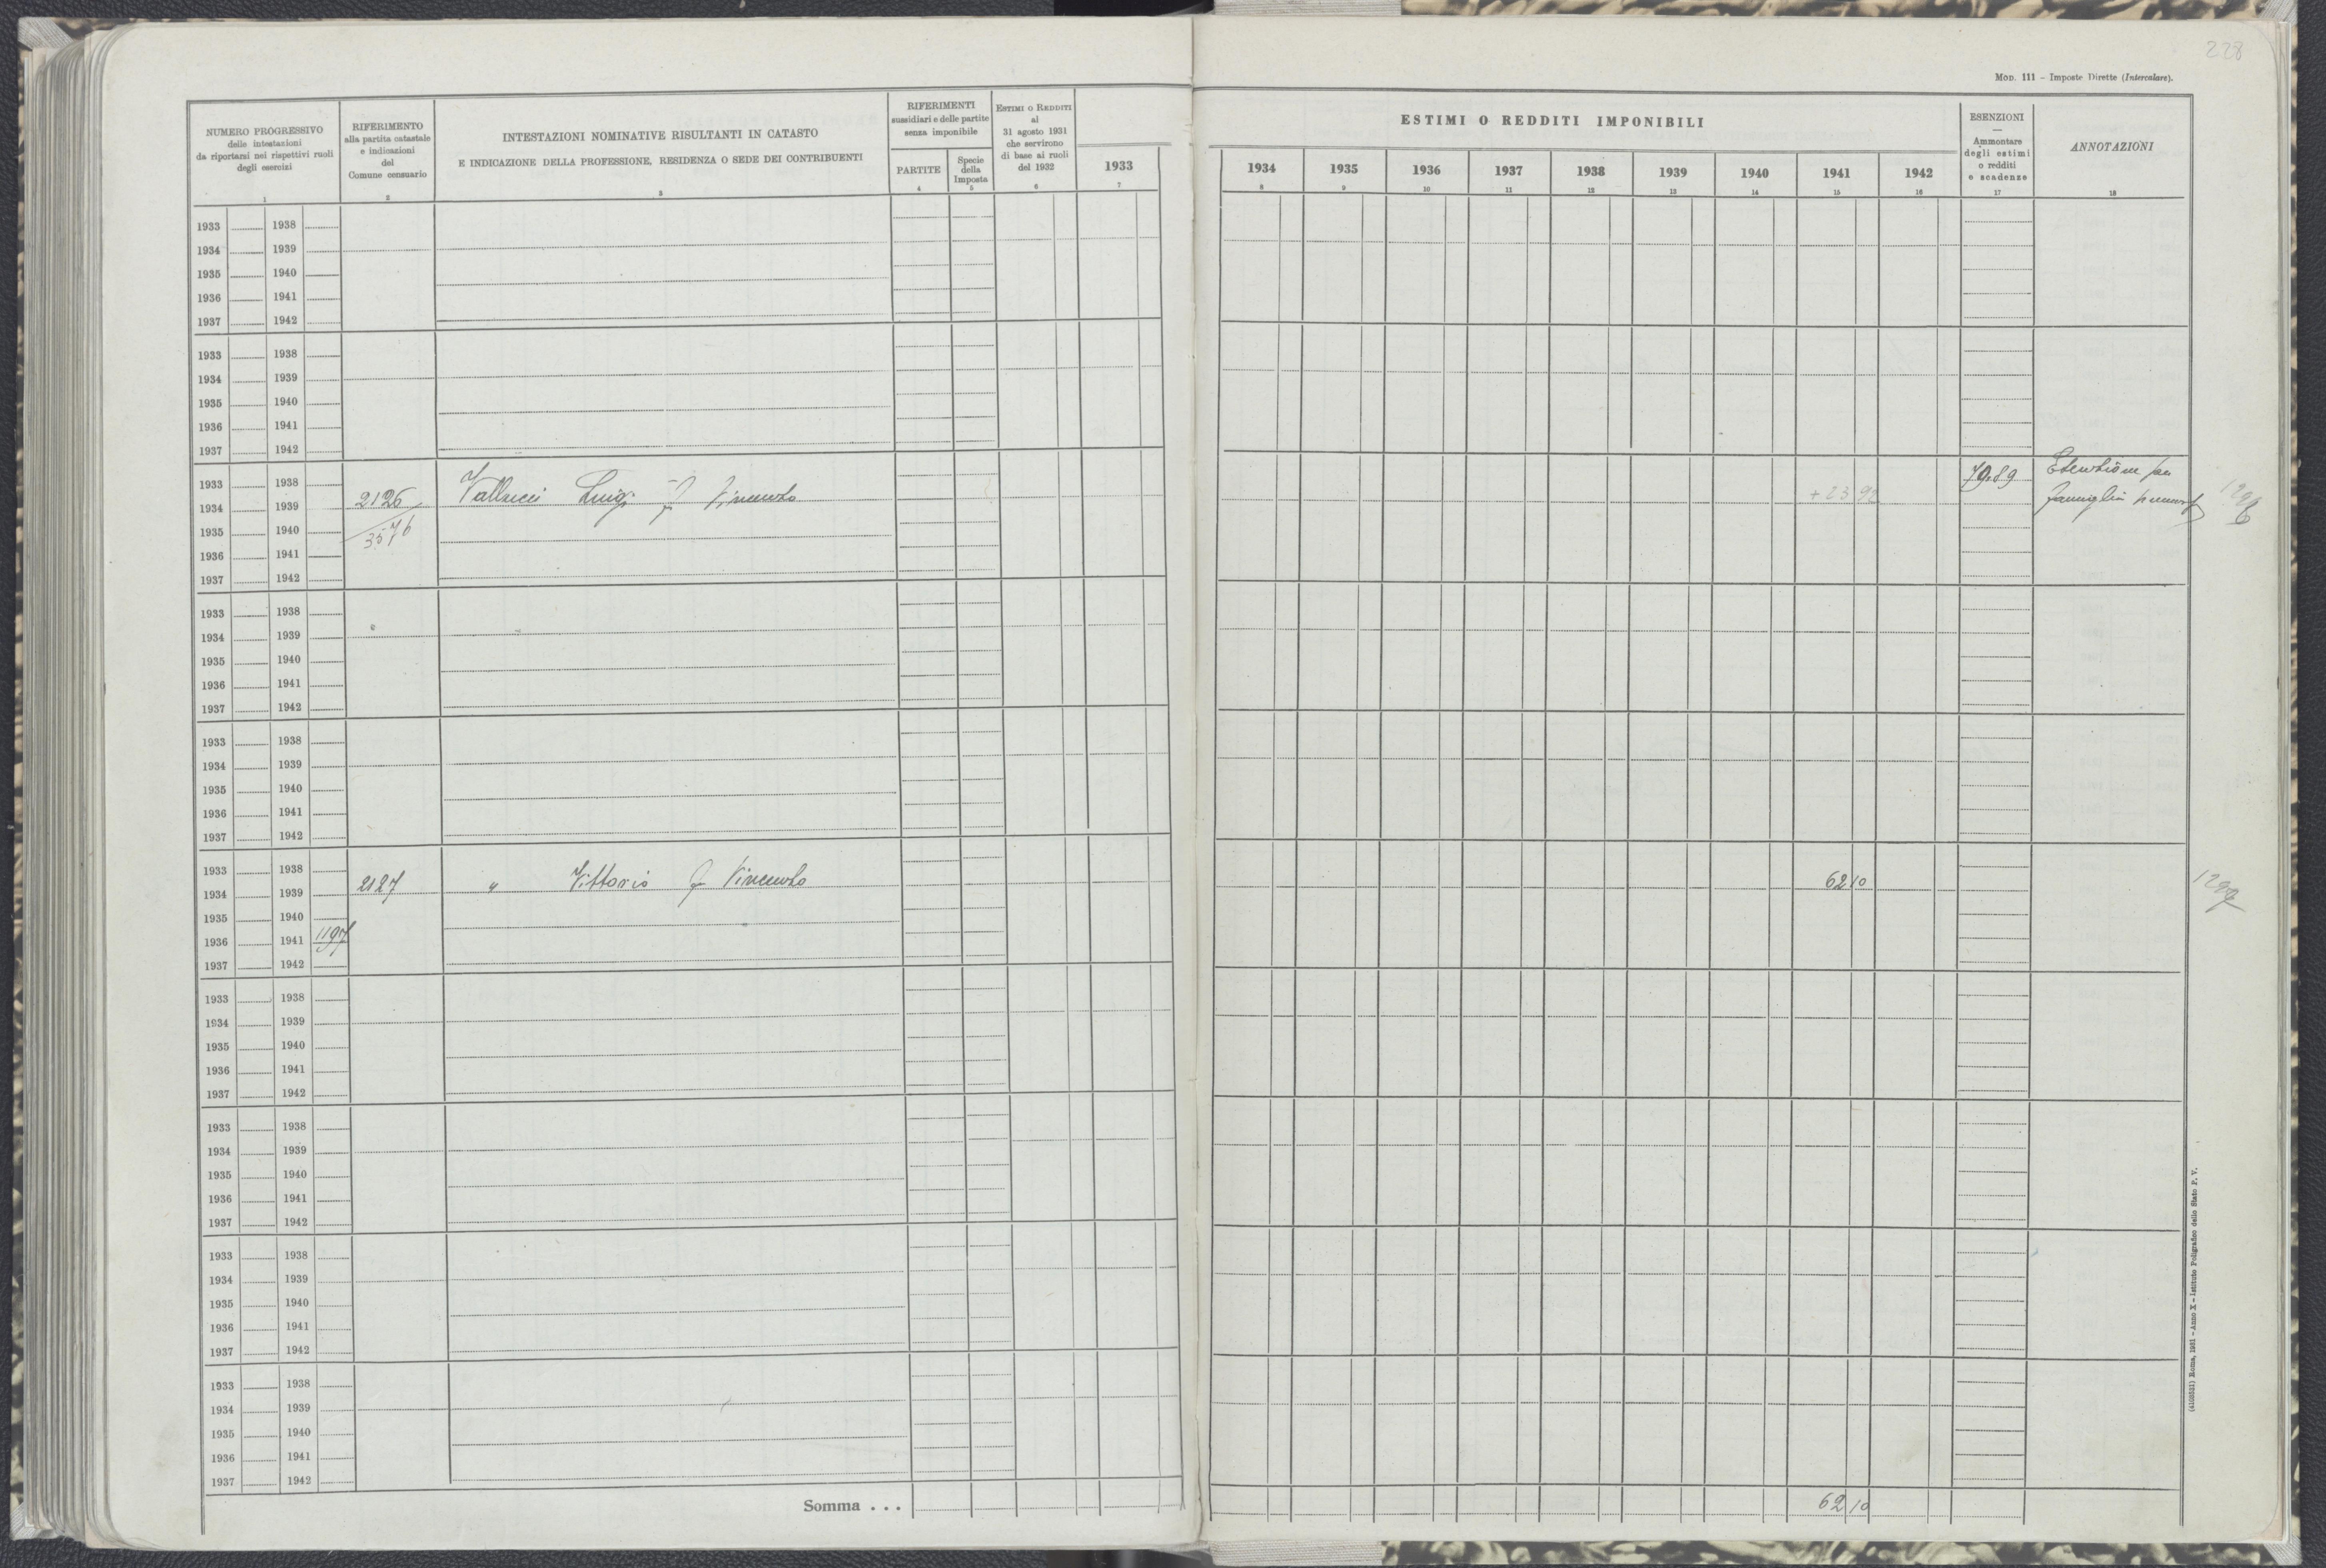 228
MOD. 111 – Imposte Dirette (Intercalare).
NUMERO PROGRESSIVO
delle intestazioni
da riportarsi nei rispettivi ruoli
degli esercizi
1
RIFERIMENTO
alla partita catastale
e indicazioni
del
Comune censuario
2
INTESTAZIONI NOMINATIVE RISULTANTI IN CATASTO
E INDICAZIONE DELLA PROFESSIONE, RESIDENZA O SEDE DEI CONTRIBUENTI
3
RIFERIMENTI
sussidiari e delle partite
senza imponibile
PARTITE
4
Specie
della
Imposta
5
ESTIMI O REDDITI
al
31 agosto 1931
che servirono
di base ai ruoli
del 1932
6
1933
7
ESTIMI O REDDITI IMPONIBILI
1934 1935 1936 1937 1938 1939 1940 1941 1942
8 9 10 11 12 13 14 15 16
ESENZIONI
—
Ammontare
degli estimi
o redditi
e scadenze
17
ANNOTAZIONI
18
1933 1938
1934 1939
1935 1940
1936 1941
1937 1942
1933 1938
1934 1939
1935 1940
1936 1941
1937 1942
1933 1938 79.89
1934 1939 2126 Vallucci Luigi fu Vincenzo + 23 92 famiglia 1296
1935 1940 3576
1936 1941
1937 1942
1933 1938
1934 1939
1935 1940
1936 1941
1937 1942
1933 1938
1934 1939
1935 1940
1936 1941
1937 1942
1933 1938
1934 1939 2127 " Vittorio fu Vincenzo 62 10 1297
1935 1940
1936 1941 1197
1937 1942
1933 1938
1934 1939
1935 1940
1936 1941
1937 1942
1933 1938
1934 1939
1935 1940
1936 1941
1937 1942
1933 1938
1934 1939
1935 1940
1936 1941
1937 1942
1933 1938
1934 1939
1935 1940
1936 1941
1937 1942
Somma . . . 62 10
(4103521) Roma, 1931 – Anno X – Istituto Poligrafico dello Stato P. V.